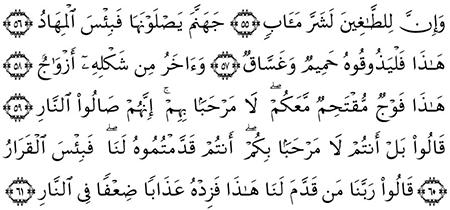 وَإِنَّ لِلطَّـٰغِينَ لَشَرَّ مَـَٔابٍ ۝٥٥ جَهَنَّمَ يَصْلَوْنَهَا فَبِئْسَ ٱلْمِهَادُ ۝٥٦
هَـٰذَا فَلْيَذُوقُوهُ حَمِيمٌ وَغَسَّاقٌ ۝٥٧ وَءَاخَرُ مِن شَكْلِهِۦٓ أَزْوَٰجٌ ۝٥٨
هَـٰذَا فَوْجٌ مُّقْتَحِمٌ مَّعَكُمْ ۖ لَا مَرْحَبًۢا بِهِمْ ۚ إِنَّهُمْ صَالُوا۟ ٱلنَّارِ ۝٥٩
قَالُوا۟ بَلْ أَنتُمْ لَا مَرْحَبًۢا بِكُمْ ۖ أَنتُمْ قَدَّمْتُمُوهُ لَنَا ۖ فَبِئْسَ ٱلْقَرَارُ
۝٦٠ قَالُوا۟ رَبَّنَا مَن قَدَّمَ لَنَا هَـٰذَا فَزِدْهُ عَذَابًا ضِعْفًا فِى ٱلنَّارِ ۝٦١